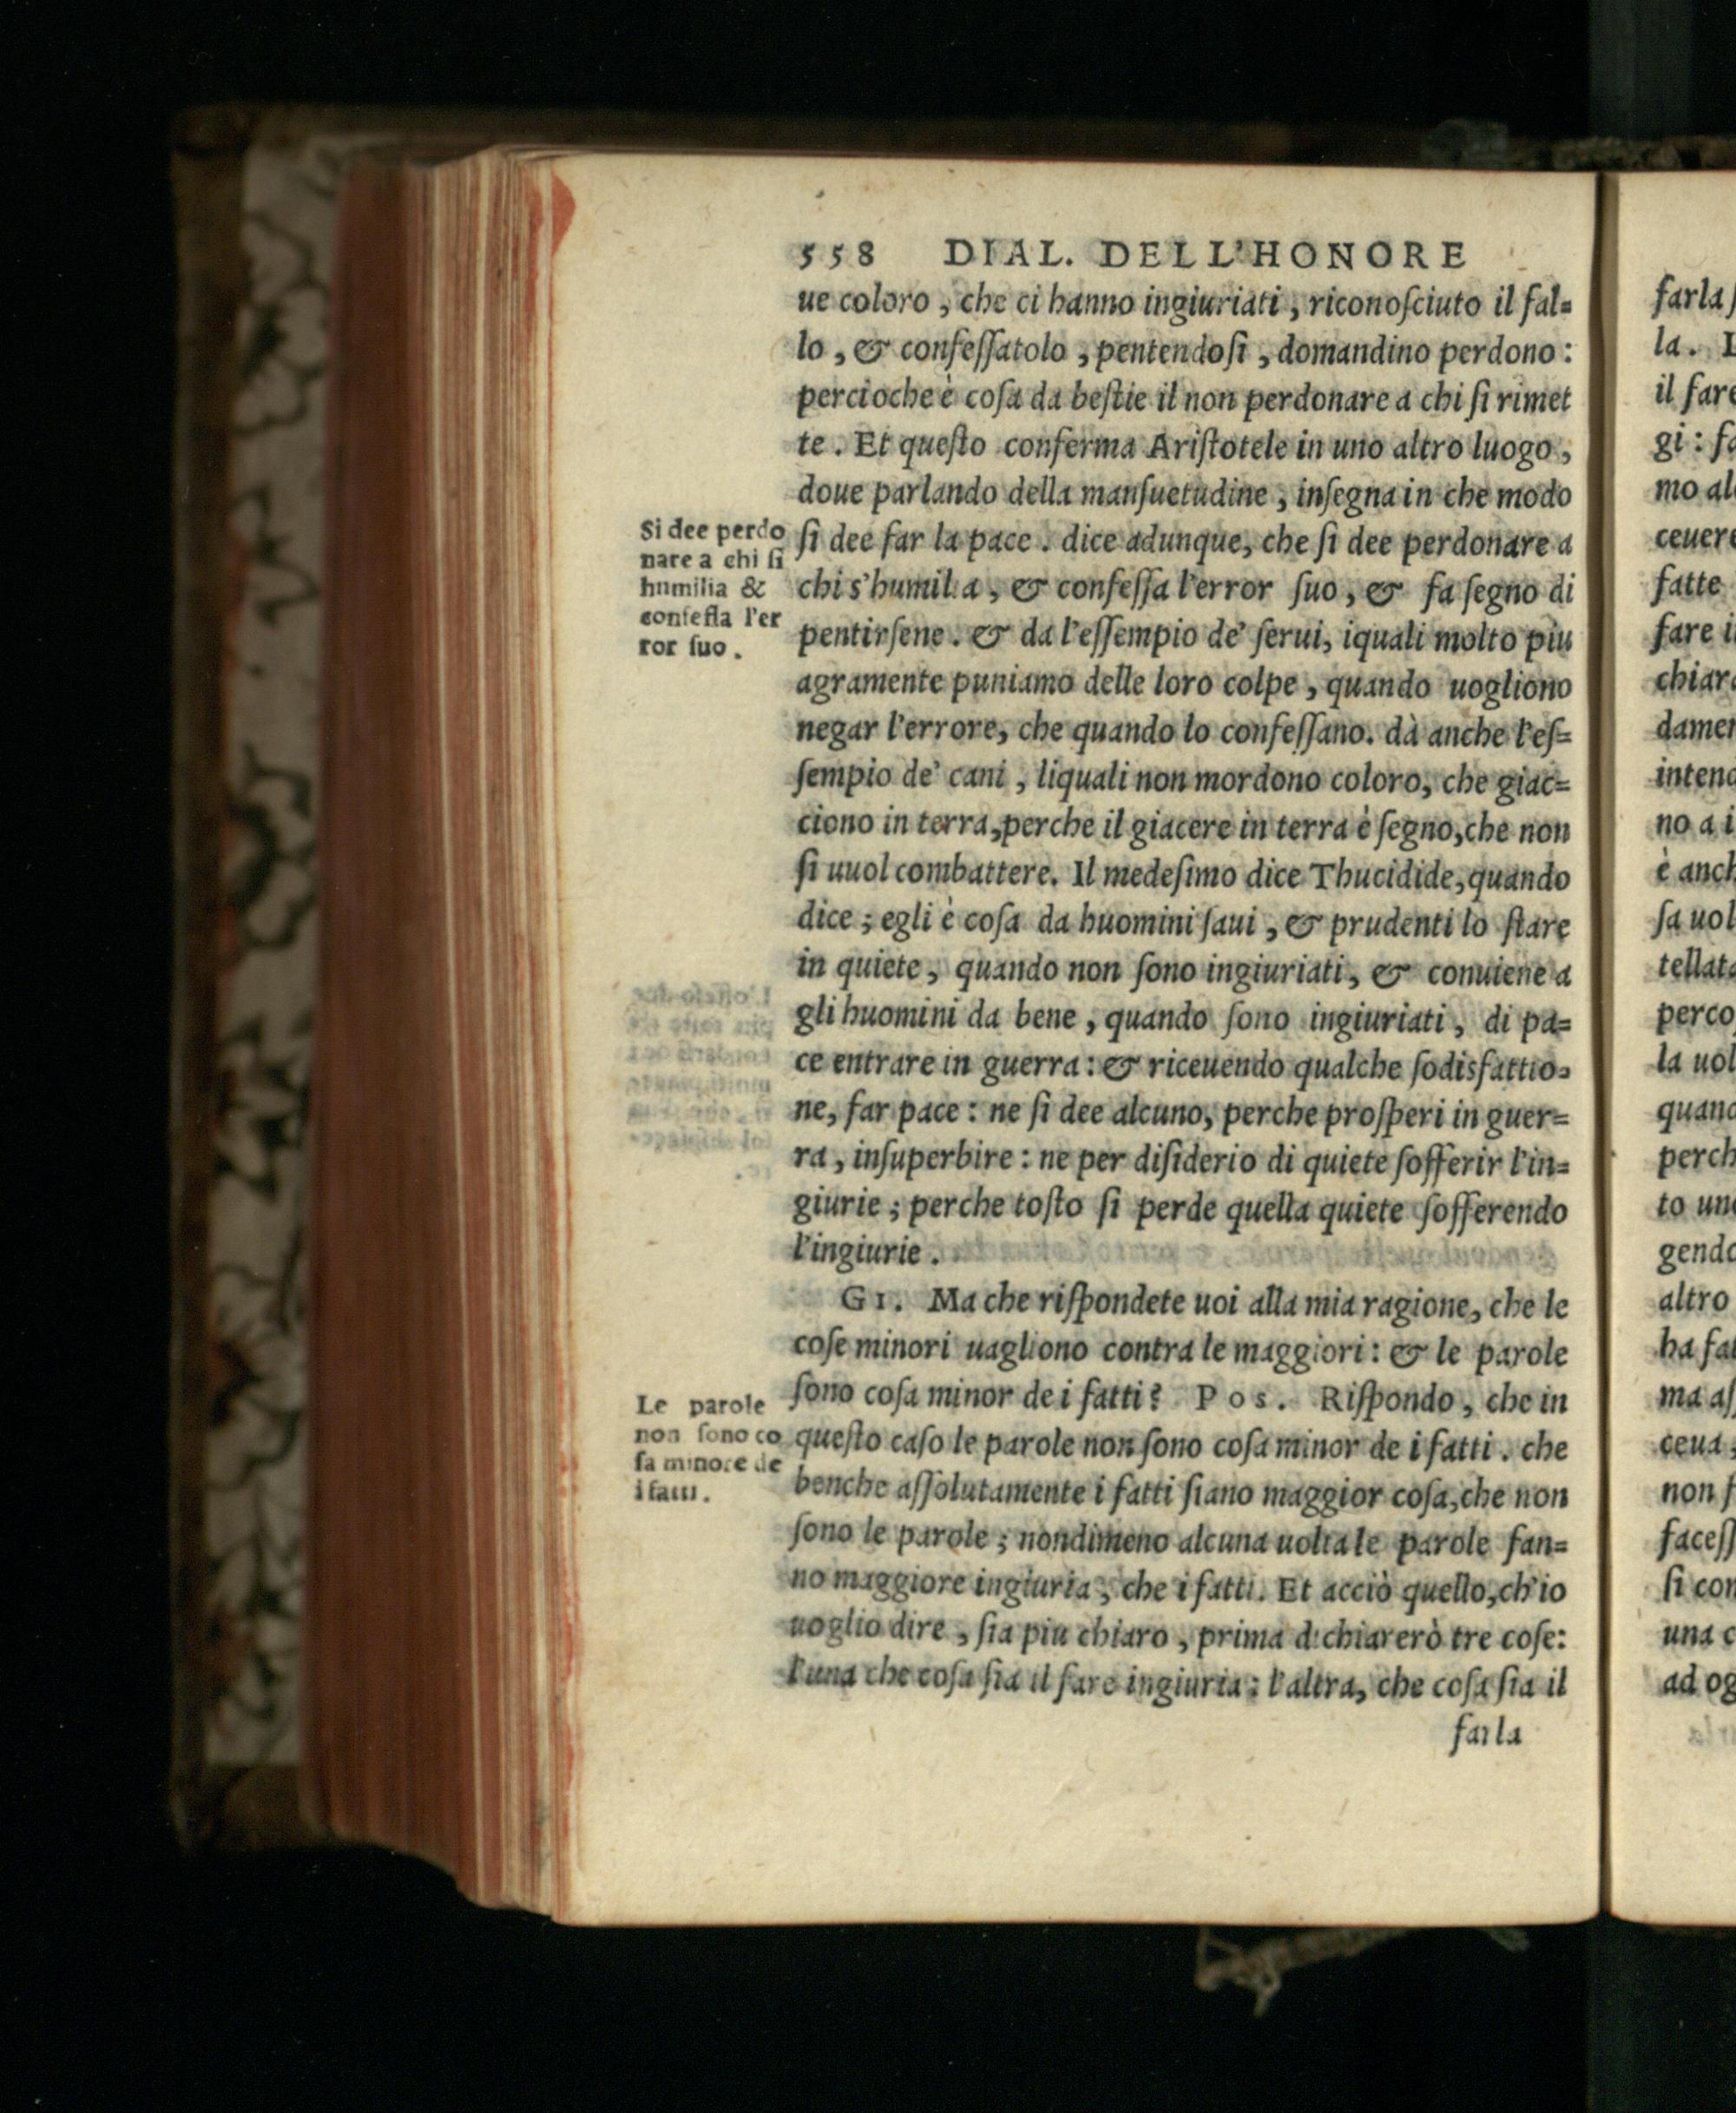 558 DIAL. DELL'HONORE
ue coloro, che ci hanno ingiuriati, riconoſciuto il fal=
lo, & confeſſatolo, pentendoſi, domandino perdono:
percioche è coſa da beſtie il non perdonare a chi ſi rimet
te. Et queſto conferma Ariſtotele in uno altro luogo,
doue parlando della manſuetudine, inſegna in che modo
ſi dee far la pace. dice adunque, che ſi dee perdonare a
chi s'humilia, & confeſſa l'error ſuo, & fa ſegno di
pentirſene. & da l'eſſempio de' ſerui, iquali molto piu
agramente puniamo delle loro colpe, quando uogliono
negar l'errore, che quando lo confeſſano. dà anche l'eſ=
ſempio de' cani, liquali non mordono coloro, che giac=
ciono in terra, perche il giacere in terra è ſegno, che non
ſi uuol combattere. Il medeſimo dice Thucidide, quando
dice; egli è coſa da huomini ſaui, & prudenti lo ſtare
in quiete, quando non ſono ingiuriati, & conuiene a
gli huomini da bene, quando ſono ingiuriati, di pa=
ce entrare in guerra: & riceuendo qualche ſodisfattio=
ne, far pace: ne ſi dee alcuno, perche proſperi in guer=
ra, inſuperbire: ne per diſiderio di quiete ſofferir l'in=
giurie; perche toſto ſi perde quella quiete ſofferendo
l'ingiurie.
GI. Ma che riſpondete uoi alla mia ragione, che le
coſe minori uagliono contra le maggiori: & le parole
ſono coſa minor de i fatti? Pos. Riſpondo, che in
queſto caſo le parole non ſono coſa minor de i fatti. che
benche aſſolutamente i fatti ſiano maggior coſa, che non
ſono le parole; nondimeno alcuna uolta le parole fan=
no maggiore ingiuria, che i fatti. Et acciò quello, ch'io
uoglio dire, ſia piu chiaro, prima dichiarerò tre coſe:
l'una che coſa ſia il fare ingiuria: l'altra, che coſa ſia il
farla
Si dee perdo
nare a chi ſi
humilia &
confeſſa l'er
ror ſuo.
Le parole
non ſono co
ſa minore de
i fatti.
farla
la.
il fare
gi:
mo
ceuere
fatte
fare
no a i
è
ſa
la
to
altro
ha
ma
ceua
non
ſi
una
ad